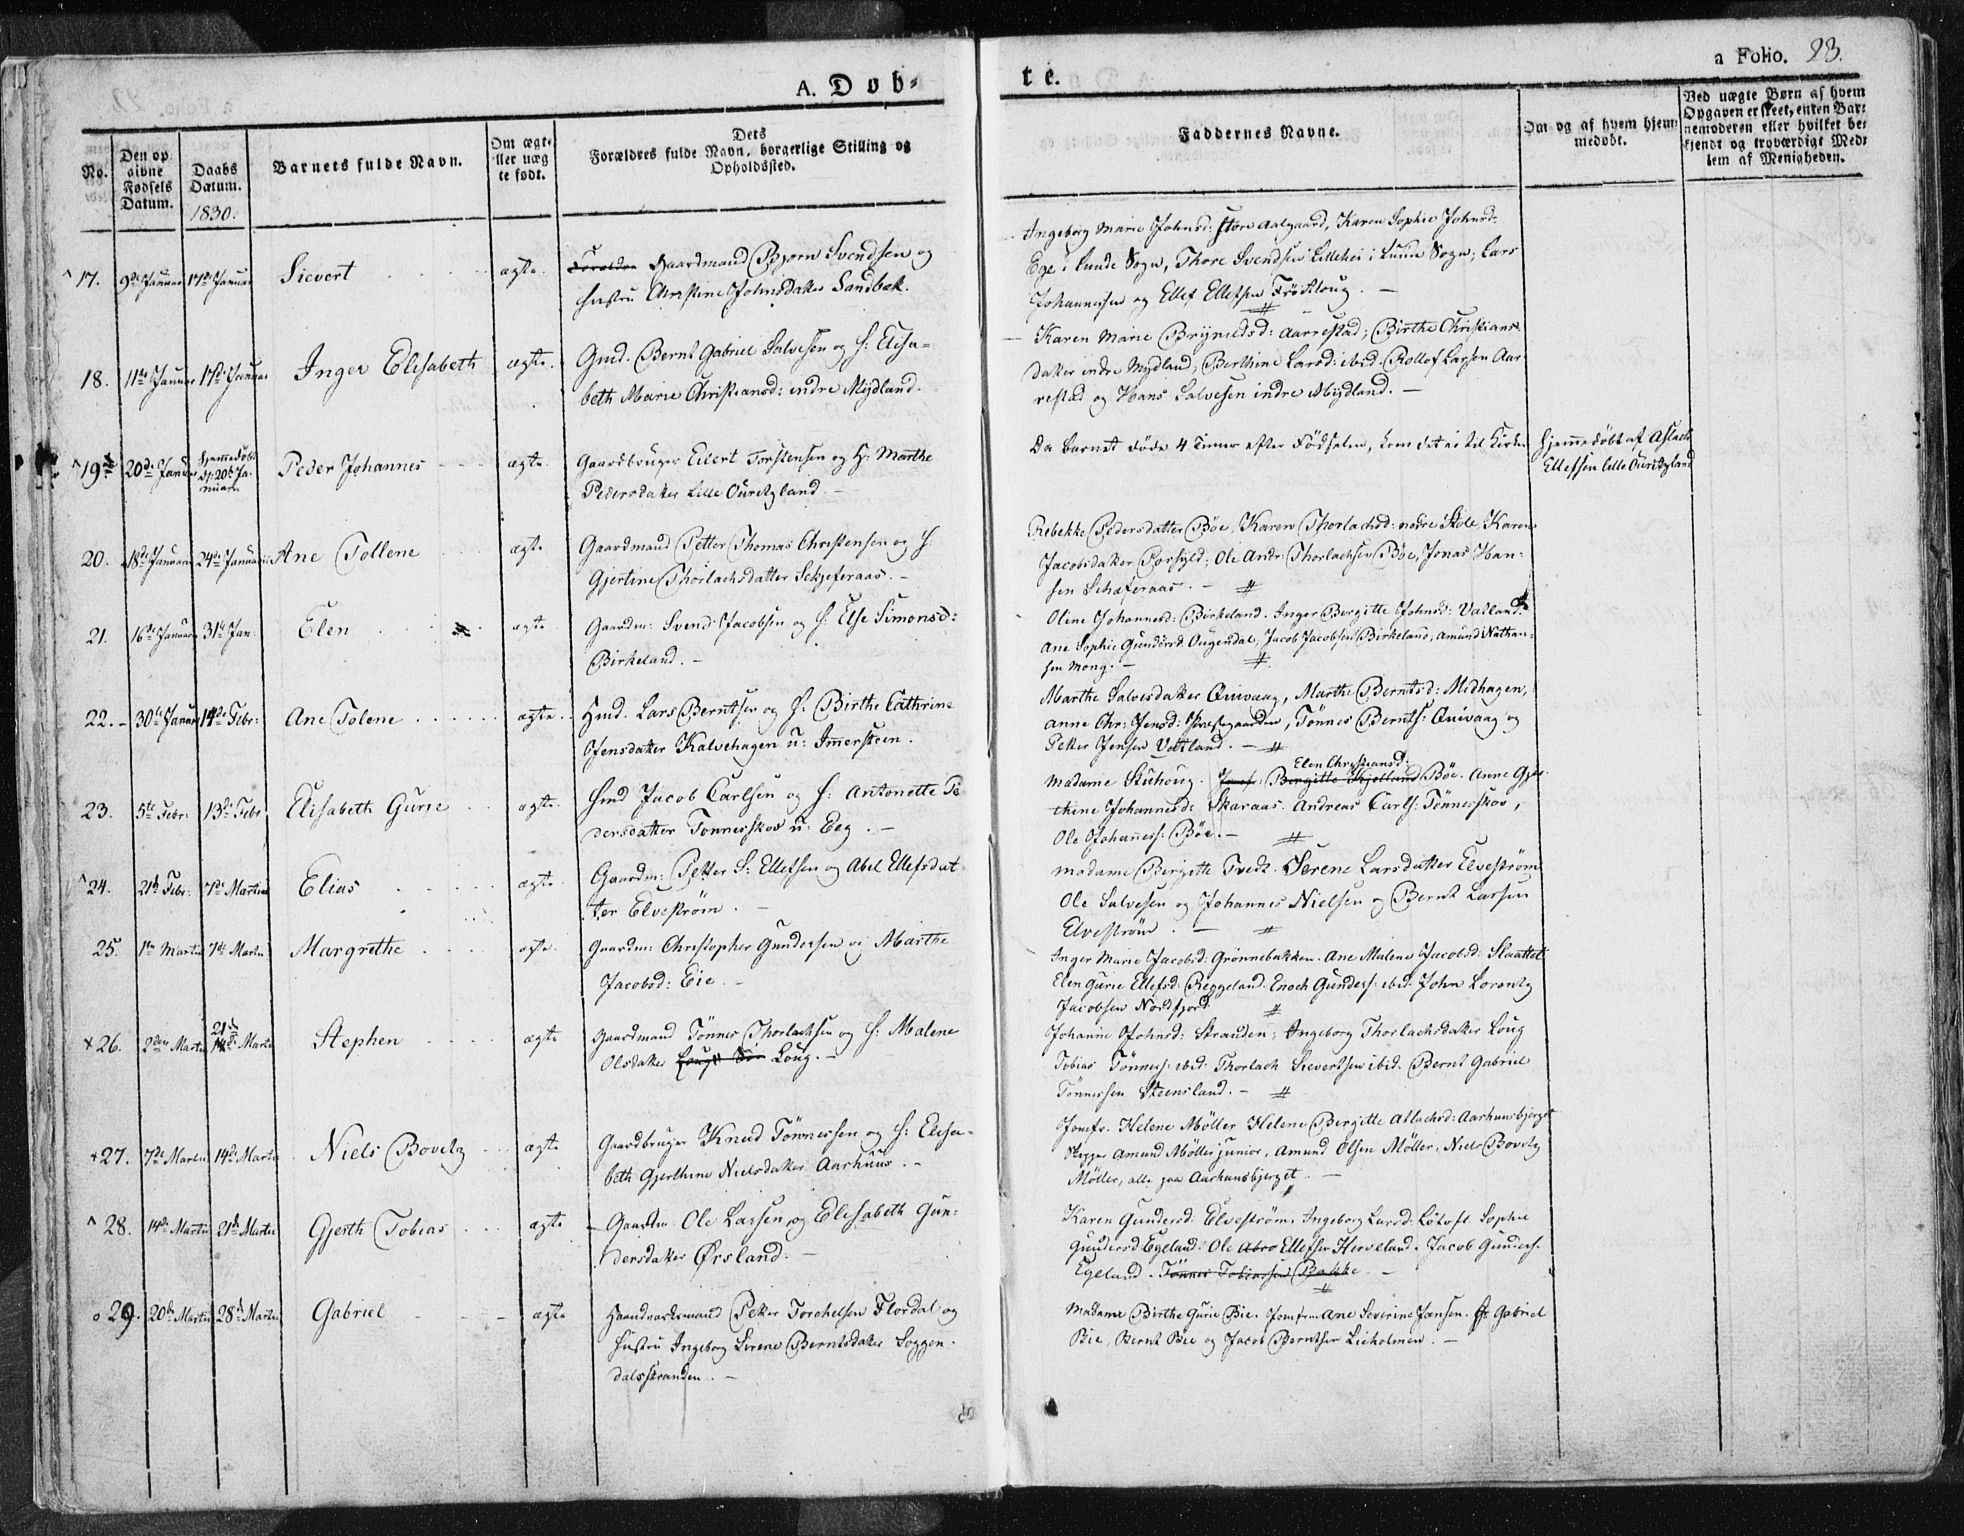 A. Døb-
te.
a Folio. 23.
No.
Den opgivne Fødsels Datum.
Daabs Datum.
1830.
Barnets fulde Navn.
Om ægteller uægte født.
Dets
Forældres fulde Navn, borgerlige Stilling og
Opholdssted.
Faddernes Navne.
Om og af hvem hjemmedøbt.
Ved uægte Børn af hvem
Opgaven er skeet, enten Bar-
nemoderen eller hvilket be-
kjendt og troværdigt Med-
lem af Menigheden.
17. 9de Januar 17de Januar Sievert ægte Gaardmand Bjørn Svendsen og
Hustru Christine Johnsdatter Sandbæk.
Ingeborg Marie Johnsd: store Aalgaard, Karen Sophie Johnsd:
Ege i Lunde Sogn, Thore Svendsen Lillehei i Lunde Sogn, Lars
Johannesen og Ellef Ellefsen Frøitloug.
18. 11te Januar 17de Januar Inger Elisabeth ægte Gmd. Bernt Gabriel Salvesen og H: Elisa-
beth Marie Christiansd: indre Mydland.
Karen Marie Brynildsd: Aarrestad; Birthe Christians-
datter indre Mydland, Berthine Larsd: ibid. Rollof Larsen Aar-
restad og Hans Salvesen indre Mydland.
19. 20de Januar Hjemmedøbt d: 20de Januar Peder Johannes ægte Gaardbruger Eilert Torstensen og H: Marthe
Pedersdatter Lille Ourdgland
Da barnet døde 4 Timer efter Fødselen, kom det ei til Kirken
Hjemmedøbt af Aslach
Ellefsen Lille Ourdgland
20. 18de Januar 24de Januar Ane Tollene ægte Gaardmand Petter Thomas Christensen og H:
Gjertine Thorlachsdatter Sckjeferaas.
Rebekke Pedersdatter Bøe, Karen Thorlachsd: nedre Skole, Karen
Jacobsdatter; Ole Andr: Thorlachsen Bøe, Jonas Han-
sen Schæferaas.
21. 16de Januar 31te Jan: Elen ægte Gaardm: Svend Jacobsen og H: Else Simonsd:
Birkeland.
Oline Johannesd: Birkeland. Inger Bergitte Johnsd: Vatland.
Ane Sophie Gundersd: Ougendal, Jacob Jacobsen Birkeland, Amund Nathan-
sen Mong.
22. 30te Januar 14de Febr: Ane Tolene ægte Hmd. Lars Berntsen og H: Birthe Cathrine
Jensdatter Kalvehagen u: Immerstein.
Marthe Salvesdatter Qvivaag, Marthe Berntsd: Midhagen,
Anne Chr: Jensd: Præstegaarden, Tønnes Bernts: Qvivaag og
Petter Jensen Vatland.
23. 5te Febr: 13de Febr: Elisabeth Gurie ægte Hmd Jacob Carlsen og H: Antonette Pe-
dersdatter Tønnesskov u: Eeg.
Elen Christiansd:
Madame Stuhoug. Jomf: Birgitte Kjelland Bøe. Anne Gjer-
thine Johannesd: Skaraas. Andreas Carls: Tønnesskov,
Ole Johanness: Bøe.
24. 21de Febr: 7de Martii Elias ægte Gaardm: Petter S: Ellefsen og Abel Ellefsdat-
ter Elvestrøm.
Madame Birgitte Tvedt. Serene Larsdatter Elvestrøm
Ole Salvesen og Johannes Nielsen og Bernt Larsen
Elvestrøm.
25. 1te Martii 7de Martii Margrethe ægte Gaardm: Christopher Gundersen og Marthe
Jacobsd: Eie.
Inger Marie Jacobsd: Grønnebakken. Ane Malene Jacobsd: Slaattet
Elen Gurie Ellefsd: Reggeland. Enoch Gunders: ibid. John Lorentz
Jacobsen Nordfjord
26. 2den Martii 21de 14de Martii Stephen ægte Gaardmand Tønnes Thorlachsen og H: Malene
Olsdatter Loug.
Johanne Johnsd: Stranden; Ingeborg Thorlachsdatter Loug
Tobias Tønness: ibid: Thorlach Sievertsen ibid. Bernt Gabriel
Tønnessen Steensland.
27. 7de Martii 14de Martii Niels Bovitz ægte Gaardbruger Knud Tønnessen og H: Elisa-
beth Gjerthine Nielsdatter Aarhuus.
Jomfr. Helene Møller Helene Bergitte Aslachsd: Aarhuusbjerget
Skipper Amund Møller junior, Amund Olsen Møller, Niels Bovitz
Møller, alle paa Aarhuusbjerget
28. 14de Martii 21de Martii Gjerth Tobias ægte Gaardm Ole Larsen og Elisabeth Gun-
dersdatter Ørsland.
Karen Gundersd: Elvestrøm, Ingeborg Larsd: Sophie
Gundersd Egeland: Ole Ellefsen Herveland. Jacob Gunders:
Egeland. Tønnes Tobiassen Bakke.
29. 20de Martii 28de Martii Gabriel ægte Haandværksmand Petter Torchelsen Flordal og
Hustru Ingeborg Serene Berntsdatter Soggen-
dalsstranden.
Madame Birthe Gurie Bie. Jomfrue Ane Severine Jansen. Gabriel
Bie, Bernt Bie og Jacob Berntsen Lieholmen.